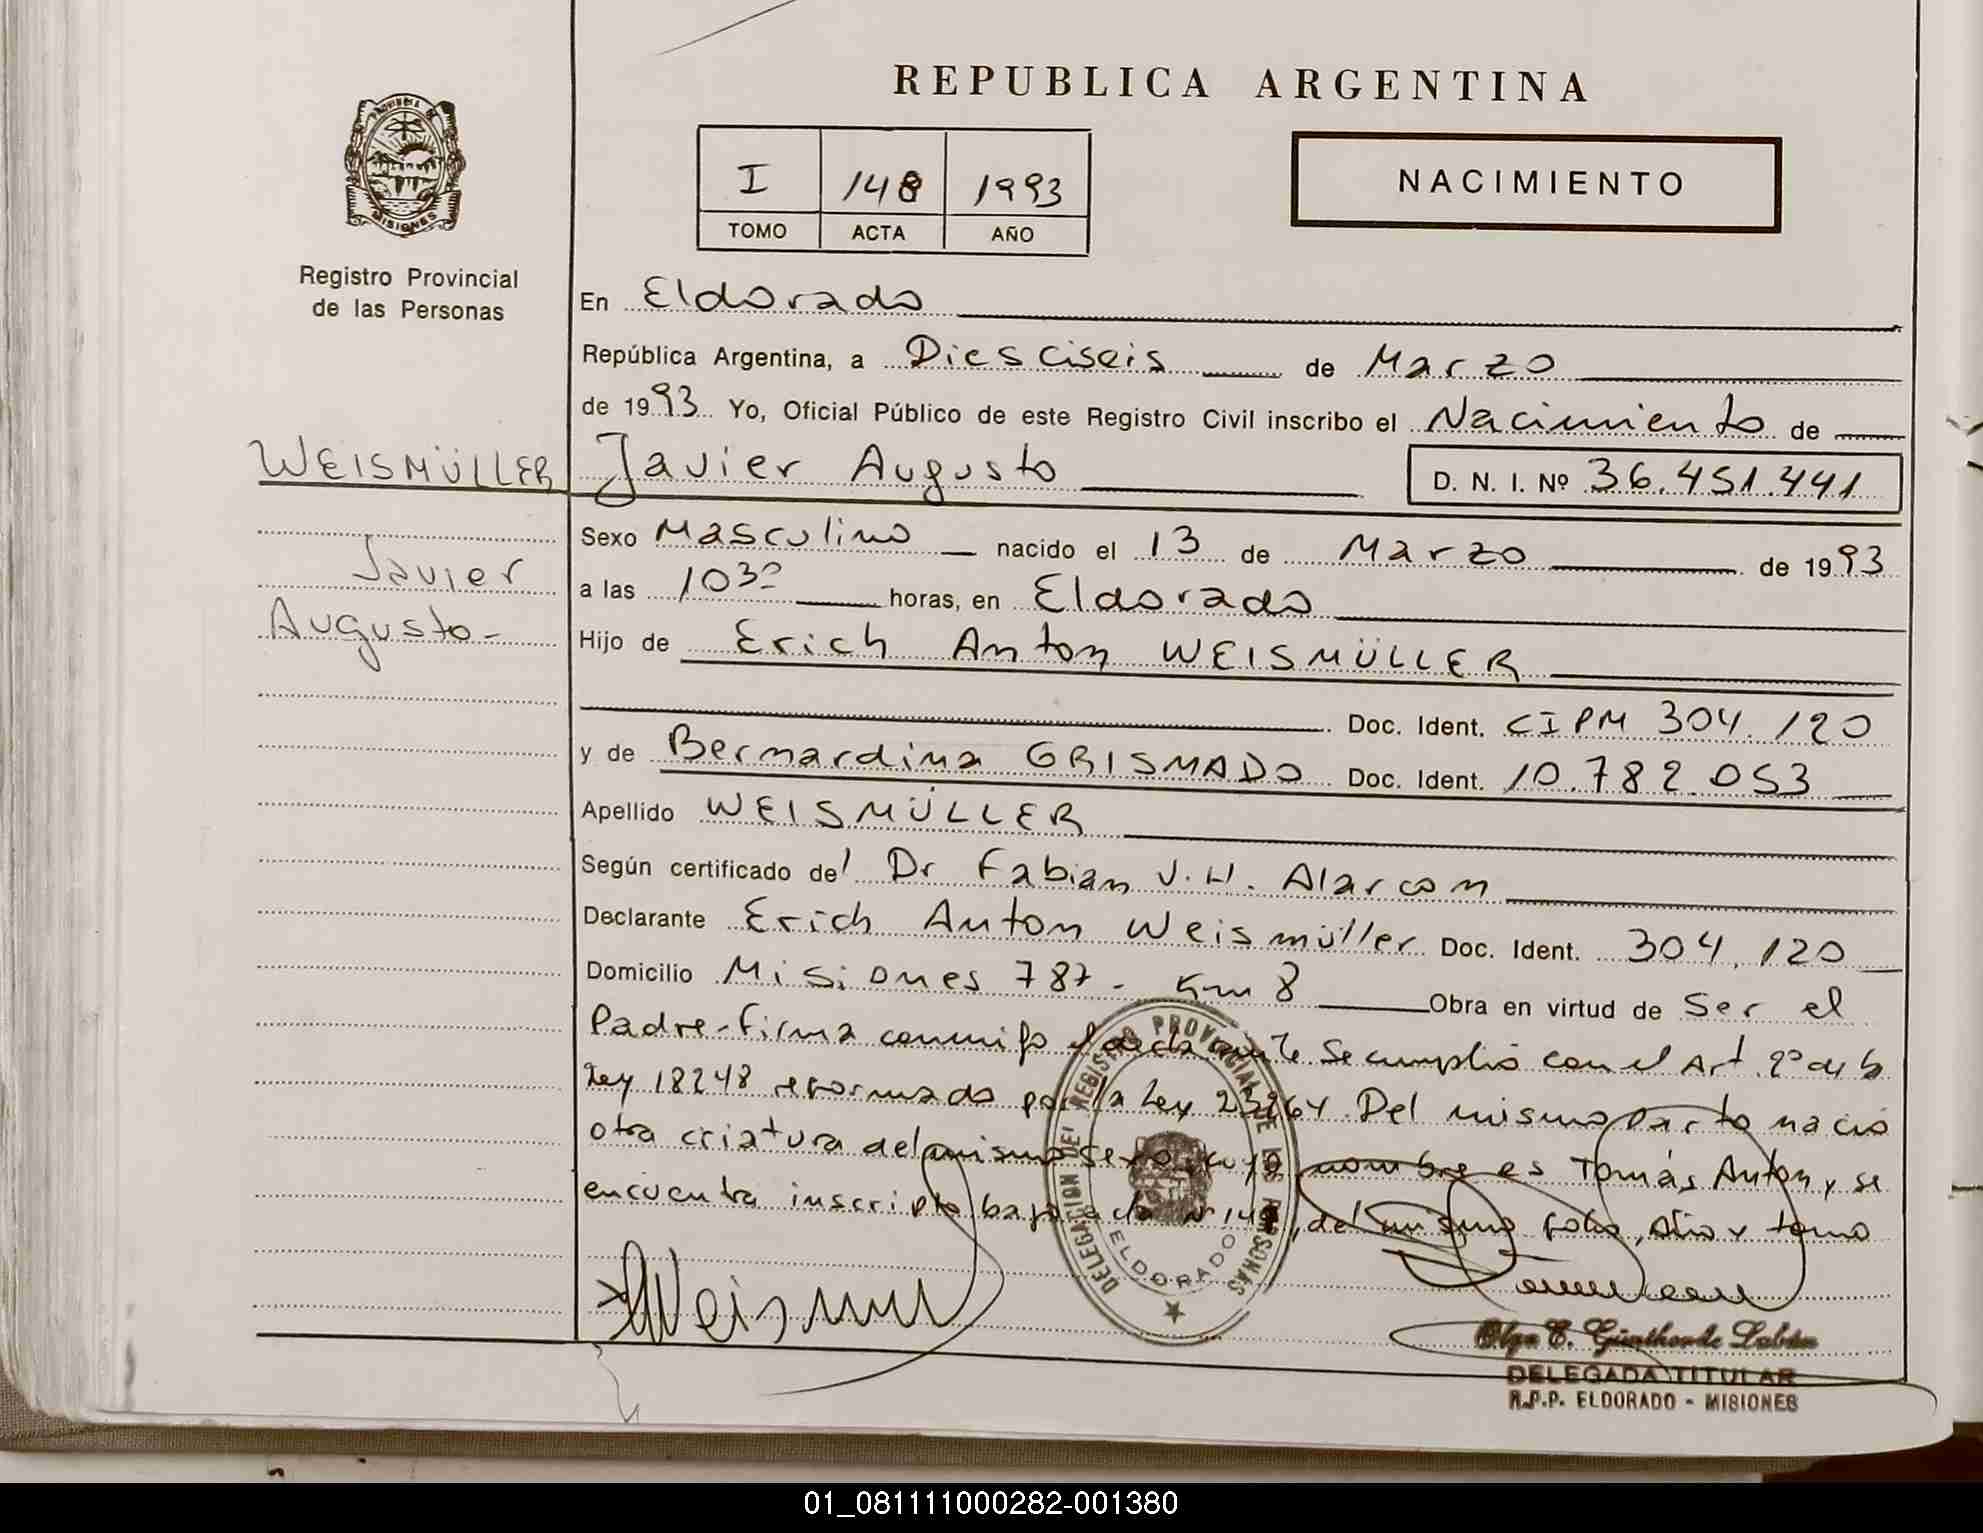 REPUBLICA ARGENTINA
PROVINCIA DE MISIONES
I 148 1993
TOMO ACTA AÑO
NACIMIENTO
Registro Provincial
de las Personas
En Eldorado
República Argentina, a Diesciseis de Marzo
de 1993 Yo, Oficial Público de este Registro Civil inscribo el Nacimiento de
WEISMÜLLER Javier Augusto D. N. I. Nº 36.451.441
Sexo Masculino nacido el 13 de Marzo de 1993
Javier
a las 10³⁰ horas, en Eldorado
Augusto-
Hijo de Erich Anton WEISMÜLLER
Doc. Ident. CIPM 304.120
y de Bernardina GRISMADO Doc. Ident. 10.782.053
Apellido WEISMÜLLER
Según certificado del Dr Fabian J.H. Alarcon
Declarante Erich Anton Weismüller Doc. Ident. 304.120
Domicilio Misiones 787 - Km 8 Obra en virtud de Ser el
Padre-Firma conmigo el declarante Se cumplió con el Art. 2º de la
Ley 18248 reformado por la Ley 23264. Del mismo parto nació
otra criatura del mismo sexo, cuyo nombre es Tomás Anton, y se
encuentra inscripto bajo acta Nº, del mismo folio, Año y tomo
DELEGACION DEL REGISTRO PROVINCIAL DE LAS PERSONAS
ELDORADO
Weismull
Olga E. Günther de Labán
DELEGADA TITULAR
R.P.P. ELDORADO - MISIONES
01_081111000282-001380